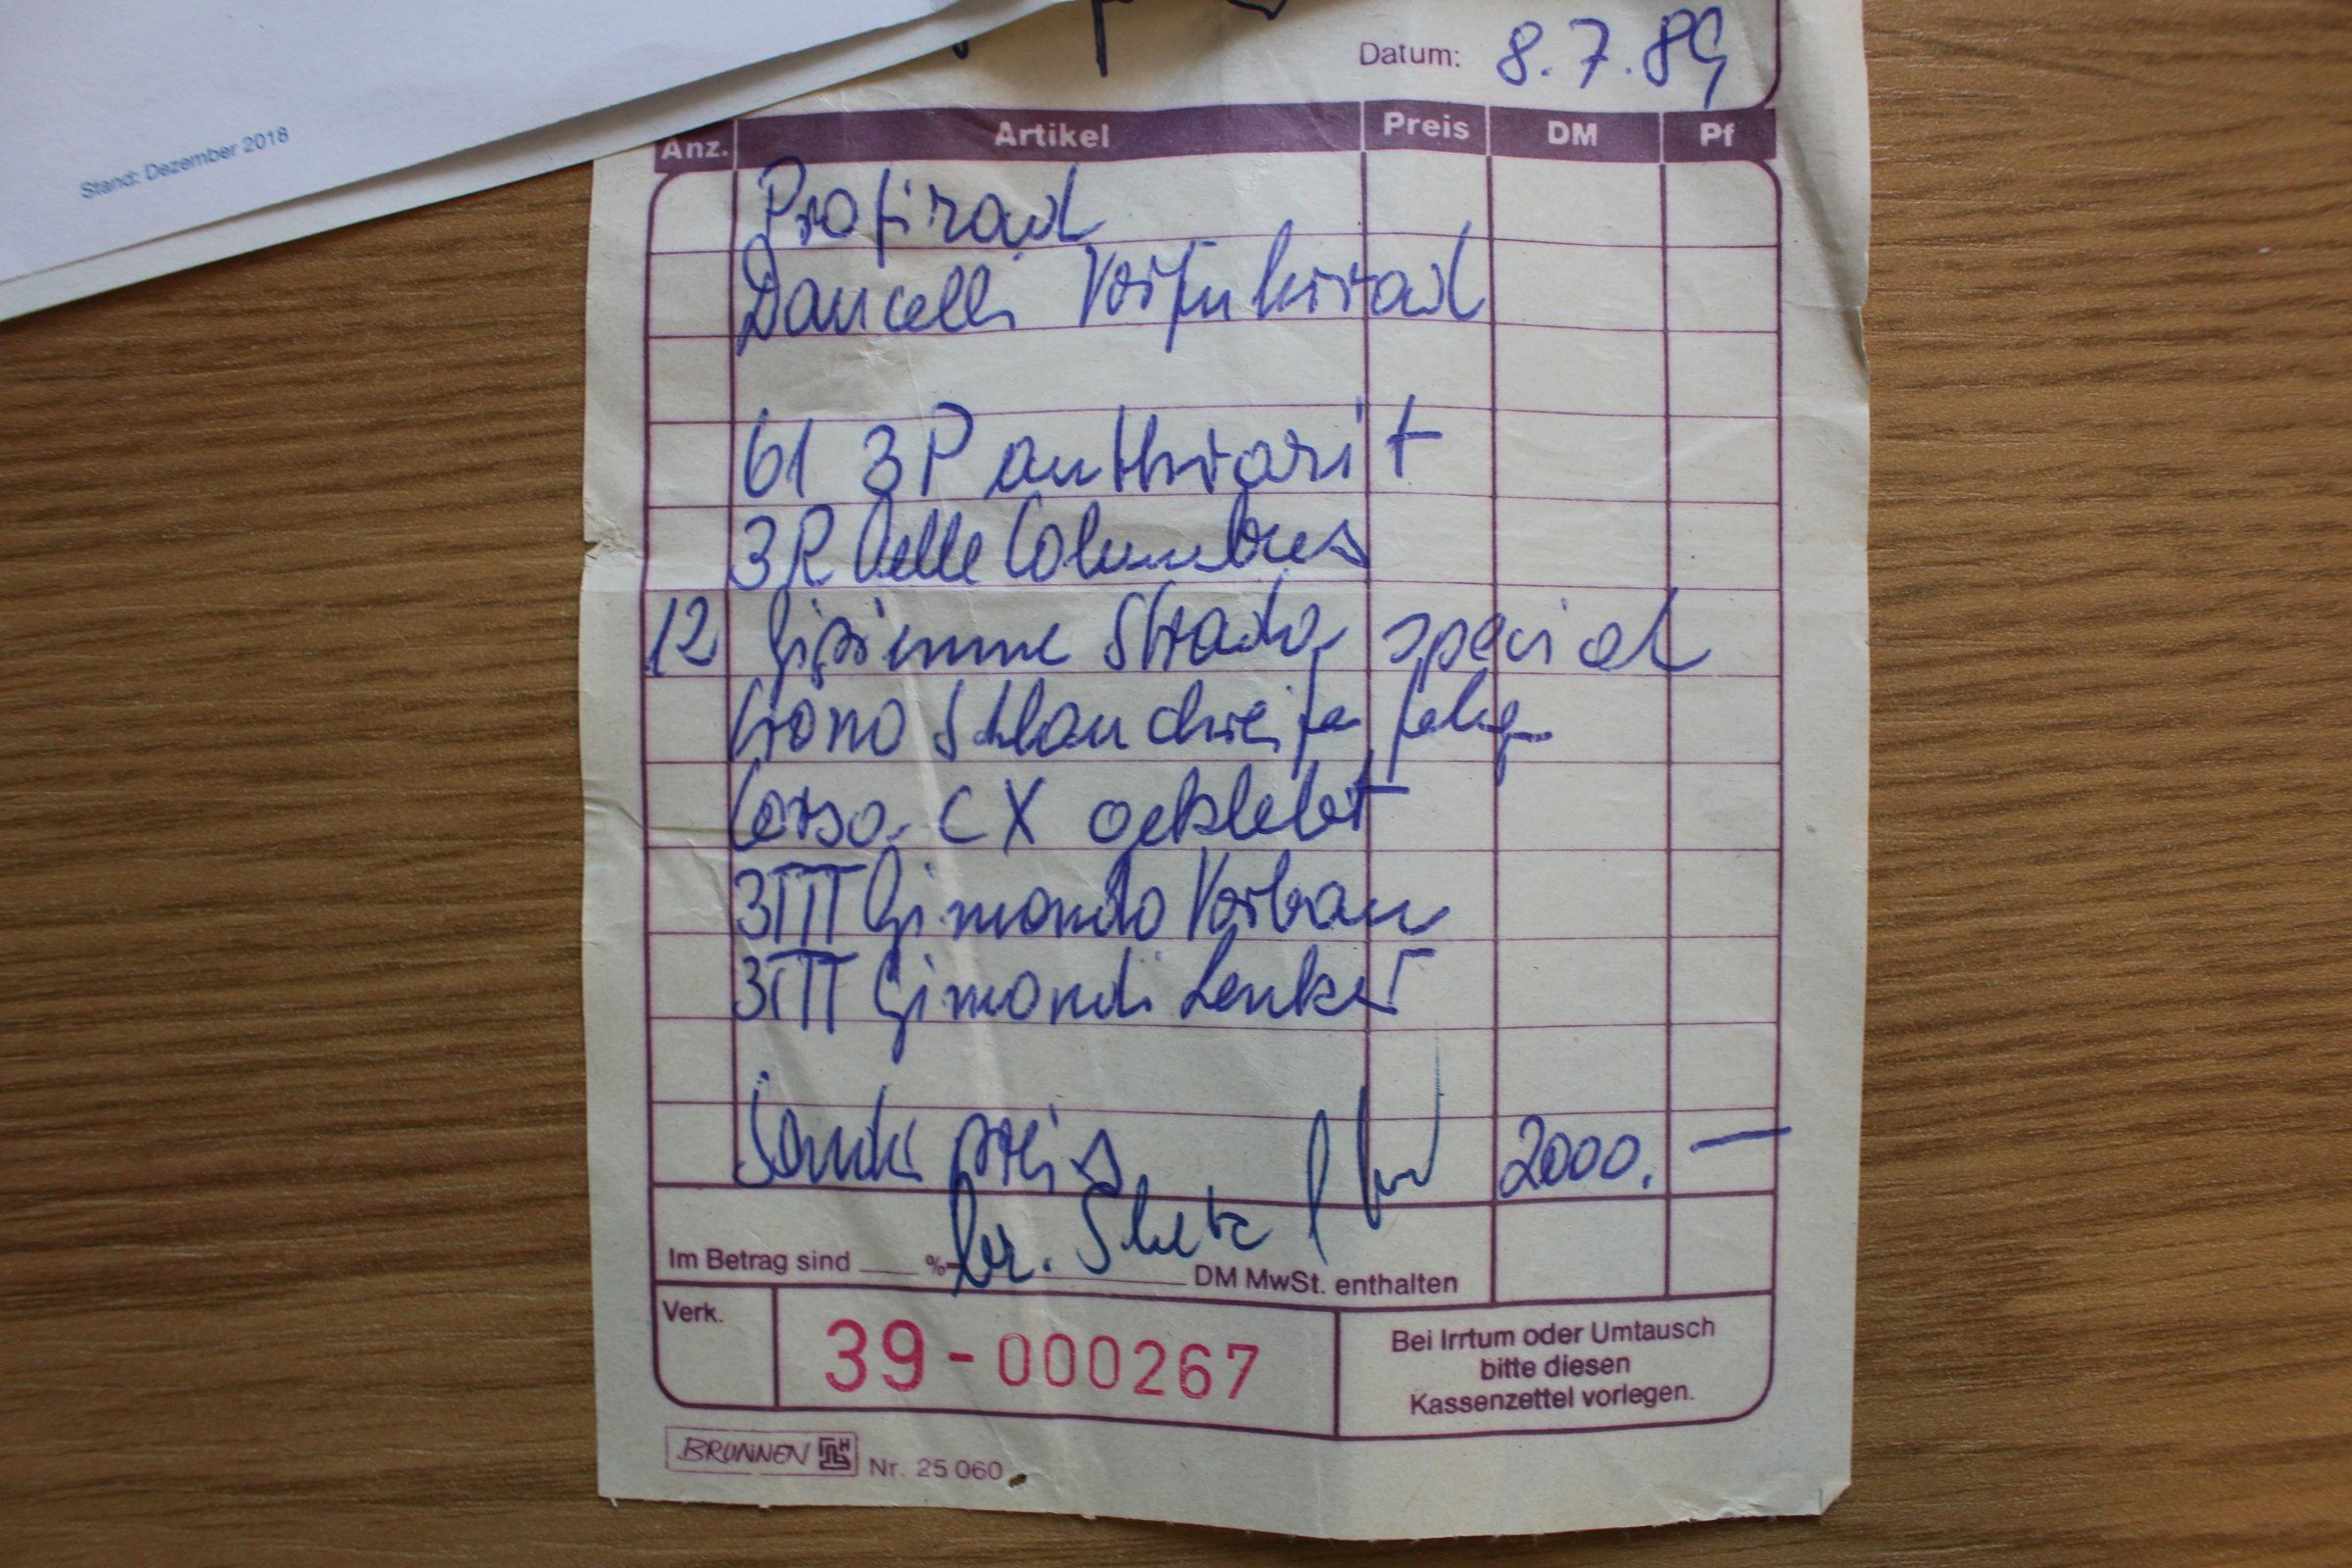 Stand: Dezember 2018
Datum: 8.7.89
Anz. Artikel Preis DM Pf
Profirad
Dancelli Vorführrad
61 3P anthrazit
3R Delle Columbus
12 Gipiemme Strada special
Crono Schlauchreifen Felgen
Corso CX geklebt
3TTT Gimondo Vorbau
3TTT Gimondi Lenker
Sonderpreis 2000.—
Im Betrag sind % DM MwSt. enthalten
Verk.
39-000267
Bei Irrtum oder Umtausch
bitte diesen
Kassenzettel vorlegen.
BRUNNEN Nr. 25 060